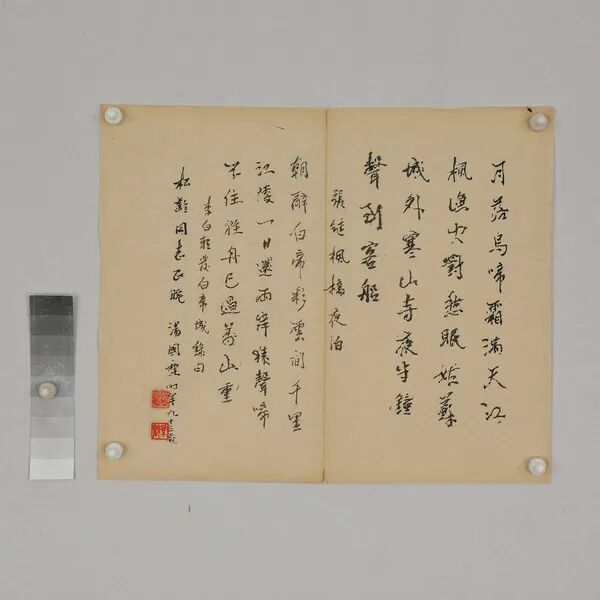 月落烏啼霜滿天江
楓漁火對愁眠姑蘇
城外寒山寺夜半鐘
聲到客船
張繼楓橋夜泊
朝辭白帝彩雲間千里
江陵一日還兩岸猿聲啼
不住輕舟已過萬山重
李白朝發白帝城錄句
松齡同志正腕
湯國棃時年九十三歲